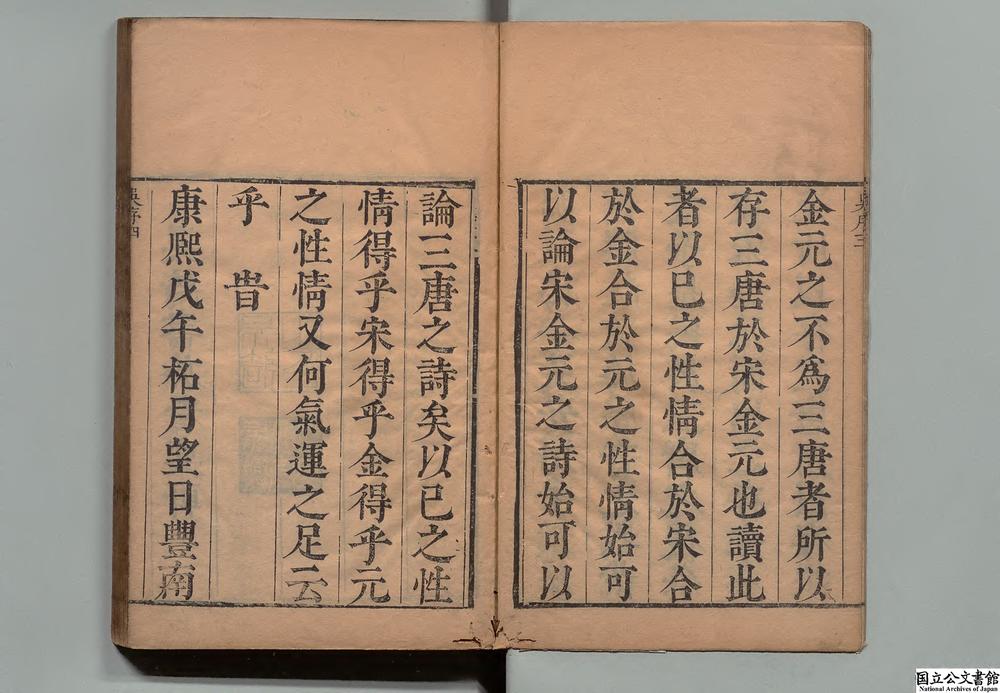 金元之不爲三唐者所以
存三唐於宋金元也讀此
者以已之性情合於宋合
於金合於元之性情始可
以論宋金元之詩始可以
論三唐之詩矣以已之性
情得乎宋得乎金得乎元
之性情又何氣運之足云
乎 旹
康熙戊午柘月望日豐南
吳序三
吳序四
国立公文書館
National Archives of Japan